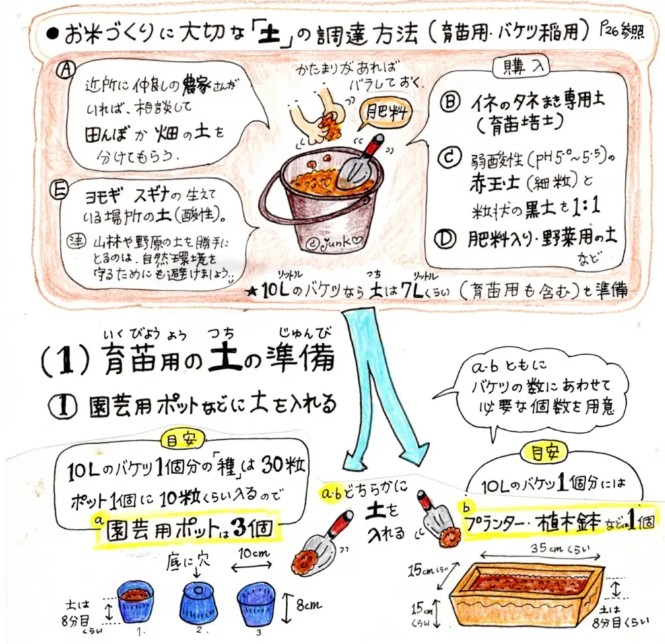 ●お米づくりに大切な「土」の調達方法(育苗用・バケツ稲用) P26参照
Ⓐ
近所に仲良しの農家さんが
いれば、相談して
田んぼか畑の土を
分けてもらう.
かたまりがあれば
バラしておく.
肥料
購入
Ⓑ イネのタネまき専用土
(育苗培土)
Ⓒ 弱酸性(pH5.0〜5.5)の
赤玉土(細粒)と
粒状の黒土を1:1
Ⓓ 肥料入り・野菜用の土
など
Ⓔ ヨモギ スギナの生えて
いる場所の土(酸性)。
㊟ 山林や野原の土を勝手に
とるのは、自然環境を
守るためにも避けましょう...
©junk♡
★10Lのバケツなら土は7Lくらい(育苗用も含む)を準備
リットル つち リットル
いくびょうよう つち じゅんび
(1)育苗用の土の準備
① 園芸用ポットなどに土を入れる
a・bともに
バケツの数にあわせて
必要な個数を用意
目安
10Lのバケツ1個分の「種」は30粒
ポット1個に10粒くらい入るので
a 園芸用ポットは3個
a・bどちらかに
土を
入れる
目安
10Lのバケツ1個分には
b プランター・植木鉢などは1個
底に穴
10cm
8cm
土は
8分目
くらい
1. 2. 3
35cmくらい
15cmくらい
15cm
くらい
土は
8分目くらい